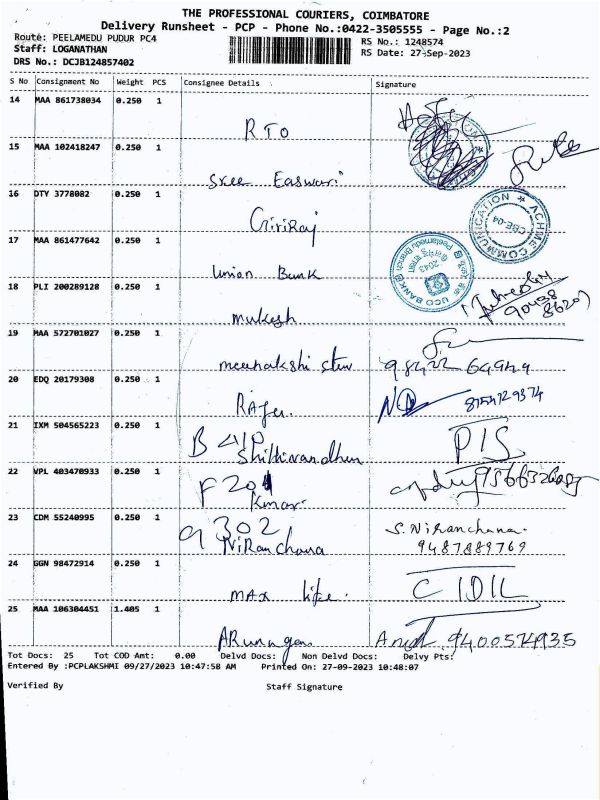 THE PROFESSIONAL COURIERS, COIMBATORE
Delivery Runsheet - PCP - Phone No.:0422-3505555 - Page No.:2
Route: PEELAMEDU PUDUR PC4
RS No.: 1248574
Staff: LOGANATHAN
RS Date: 27-Sep-2023
DRS No.: DCJB124857402
S No Consignment No Weight PCS Consignee Details Signature
14 MAA 861738034 0.250 1
RTO
15 MAA 102418247 0.250 1
Sree Easwari
16 DTY 3778082 0.250 1
Giriraj
ACHME COMMUNICATION CBE-04
17 MAA 861477642 0.250 1
Union Bank
UCO BANK Peelamedu Branch 2043
18 PLI 200289128 0.250 1
Mukesh
19 MAA 572701027 0.250 1
meenakshi
20 EDQ 20179308 0.250 1
21 IXM 504565223 0.250 1
PIS
22 VPL 403470933 0.250 1
F 201
Kumar
23 CDM 55240995 0.250 1
9 302
Niranchana
S. Niranchana.
9487889769
24 GGN 98472914 0.250 1
max life.
25 MAA 106304451 1.405 1
9400574935
Tot Docs: 25 Tot COD Amt: 0.00 Delvd Docs: Non Delvd Docs: Delvy Pts:
Entered By :PCPLAKSHMI 09/27/2023 10:47:58 AM Printed On: 27-09-2023 10:48:07
Verified By Staff Signature